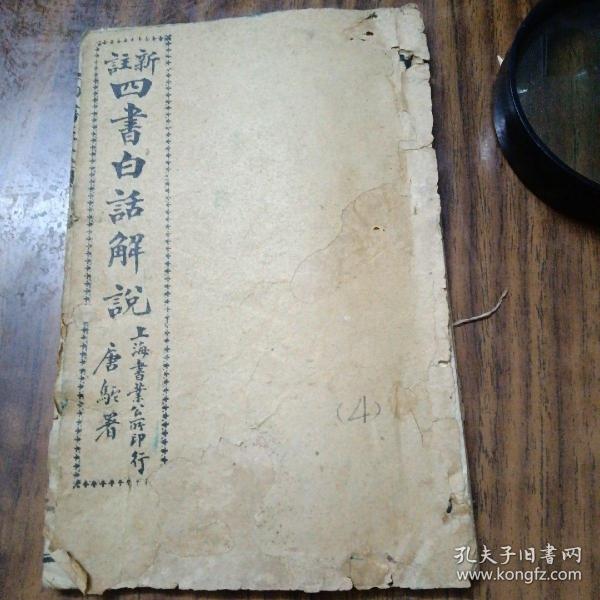 新註
四書白話解說
上海書業公所印行
唐駝署
(4)
孔夫子旧书网
www.kongfz.com